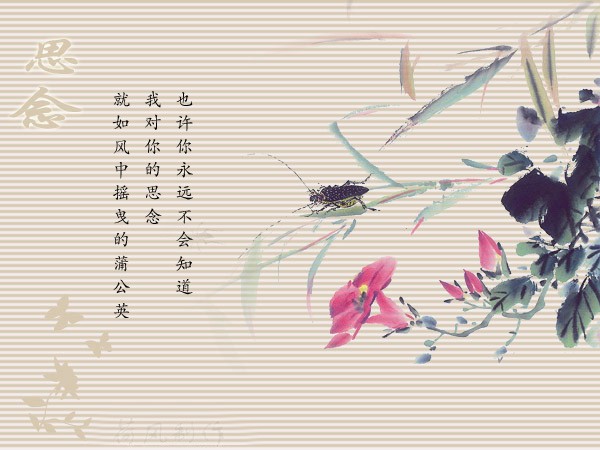 思念
也许你永远不会知道
我对你的思念
就如风中摇曳的蒲公英